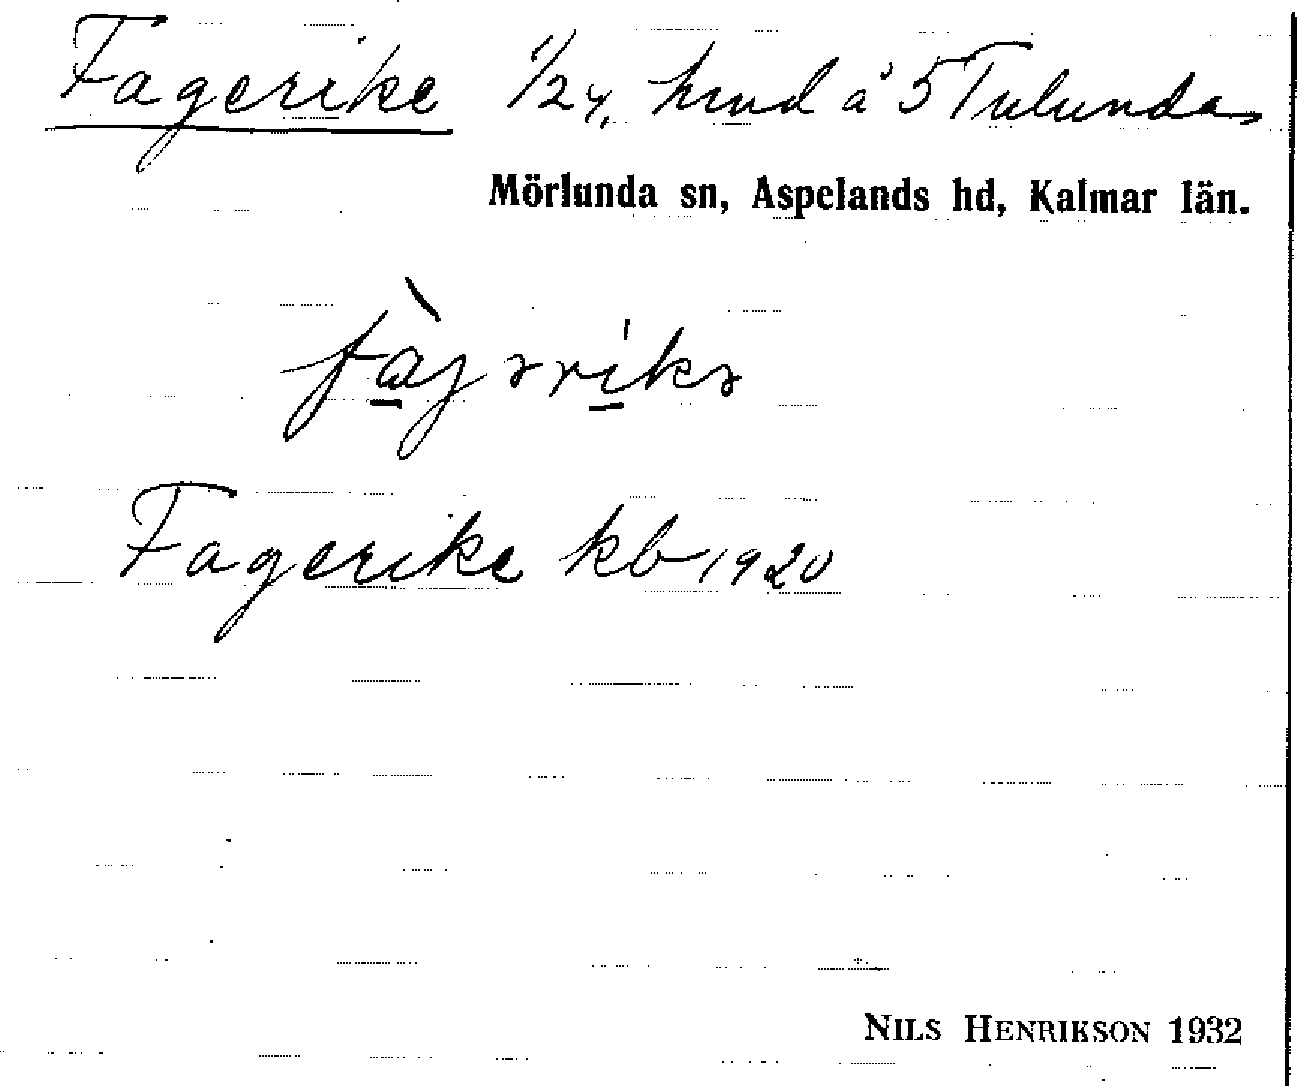 Fagerike 1/24, hmd å 5 Tulunda
Mörlunda sn, Aspelands hd, Kalmar län.
fàgərikə
Fagerike kb 1920
NILS HENRIKSON 1932